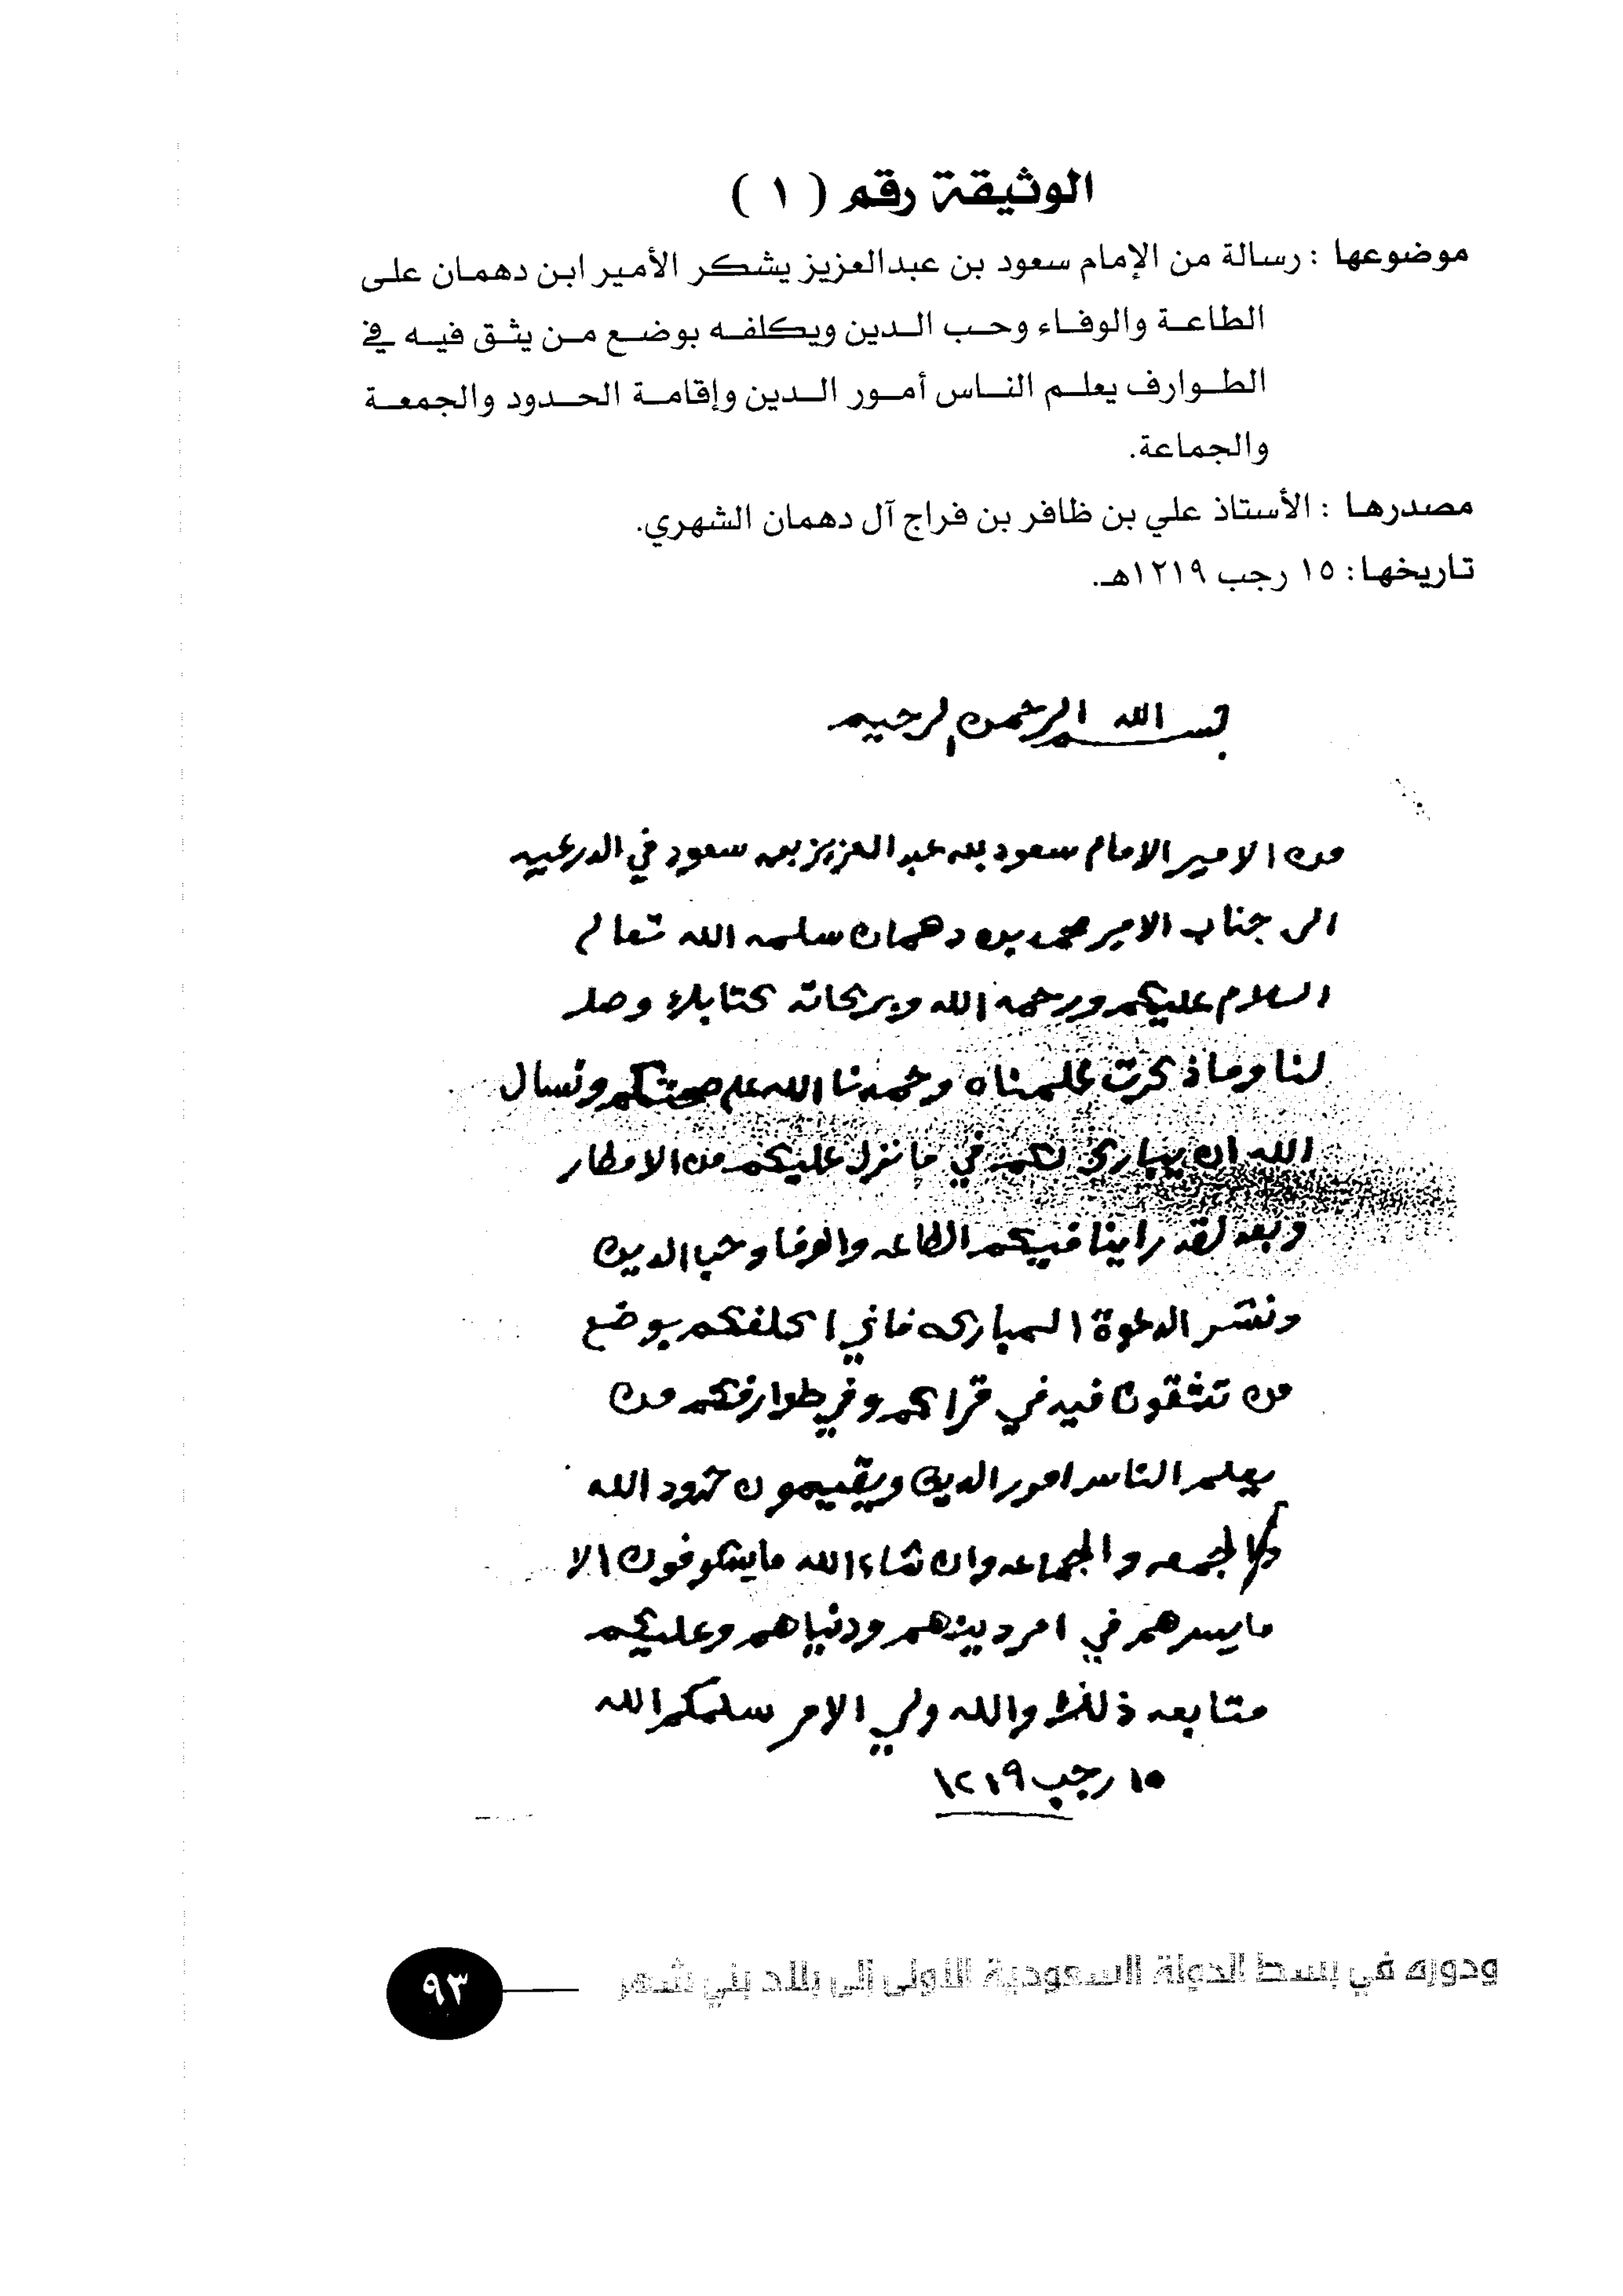 الوثيقة رقم ( ١ )
موضوعها : رسالة من الإمام سعود بن عبدالعزيز يشكر الأمير ابن دهمان على
الطاعة والوفاء وحب الدين ويكلفه بوضع من يثق فيه في
الطوارف يعلم الناس أمور الدين وإقامة الحدود والجمعة
والجماعة.
مصدرها : الأستاذ علي بن ظافر بن فراج آل دهمان الشهري.
تاريخها : ١٥ رجب ١٢١٩هـ.
بسم الله الرحمن الرحيم
من الامير الامام سعود بن عبد العزيز بن سعود في الدرعيه
الى جناب الامير محمد بن دهمان سلمه الله تعالى
السلام عليكم ورحمه الله وبركاته كتابك وصل
لنا وماذكرت علمناه وحمدنا الله على صحتكم ونسال
الله ان يبارك لكم في ما نزل عليكم من الامطار
وبعد لقد راينا فيكم الطاعه والوفا وحب الدين
ونشر الدعوة المباركه فاني اكلفكم بوضع
من تثقون فيه في قراكم وفي طوارفكم من
يعلم الناس امور الدين ويقيمون حدود الله
والجمعه والجماعه وان شاء الله مايشوفون الا
مايسرهم في امر دينهم ودنياهم وعليكم
متابعه ذلك والله ولي الامر سلمكم الله
١٥ رجب ١٢١٩
ودوره في بسط الدولة السعودية الأولى إلى بلاد بني شهر
٩٣